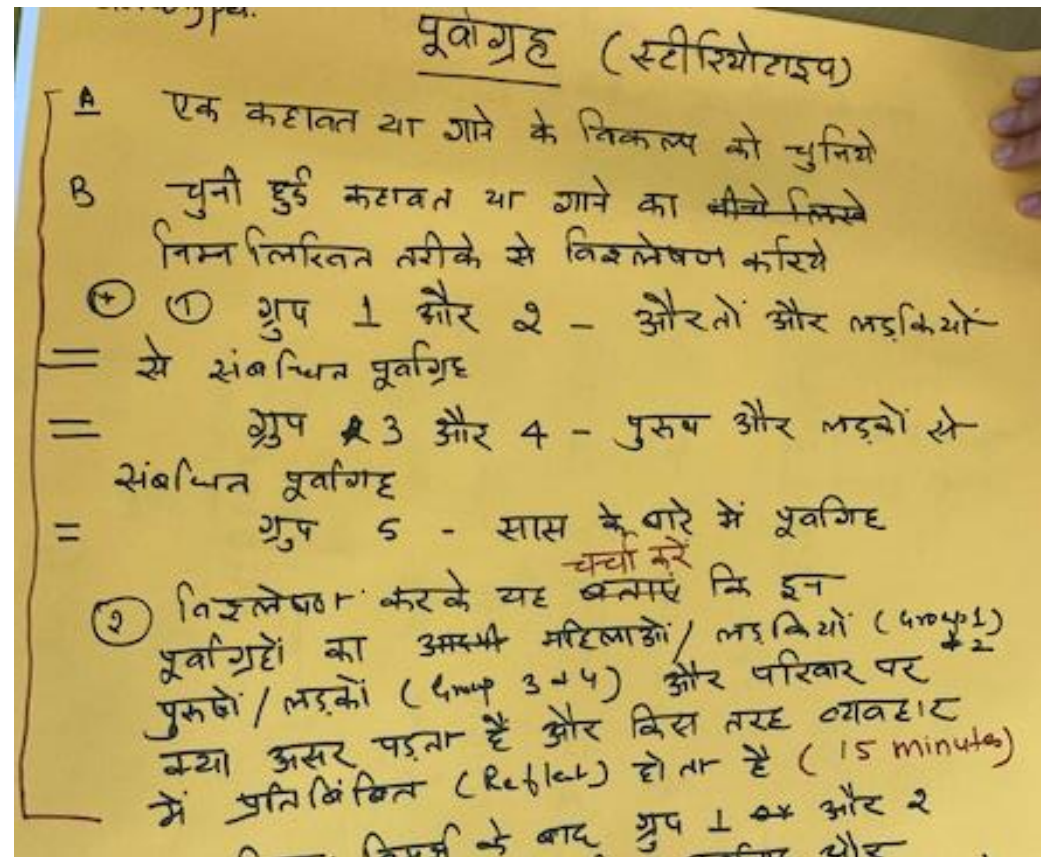 पूर्वाग्रह (स्टीरियोटाइप)
A एक कहावत या गाने के विकल्प को चुनिये
B चुनी हुई कहावत या गाने का नीचे लिखे
निम्न लिखित तरीके से विश्लेषण करिये
① ग्रुप 1 और २ - औरतों और लड़कियों
से संबन्धित पूर्वाग्रह
ग्रुप 3 और 4 - पुरुष और लड़कों से
संबन्धित पूर्वाग्रह
ग्रुप 5 - सास के बारे में पूर्वाग्रह
चर्चा करें
② विश्लेषण करके यह बताएं कि इन
पूर्वाग्रहों का महिलाओं / लड़कियों (Group 1
+ 2)
पुरुषों / लड़कों (Group 3 + 4) और परिवार पर
क्या असर पड़ता है और किस तरह व्यवहार
में प्रतिबिंबित (Reflect) हो ता है (15 minutes)
के बाद ग्रुप 1 और २
और